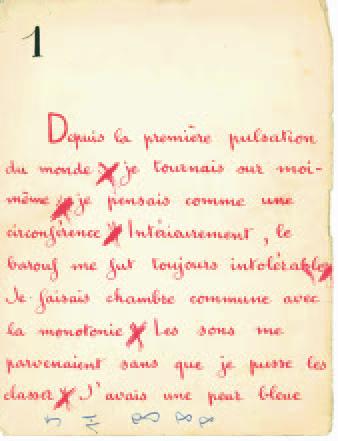 1
Depuis la première pulsation
du monde je tournais sur moi-
même je pensais comme une
circonférence Intérieurement, le
barouf me fut toujours intolérable
Je faisais chambre commune avec
la monotonie Les sons me
parvenaient sans que je pusse les
classer J'avais une peur bleue